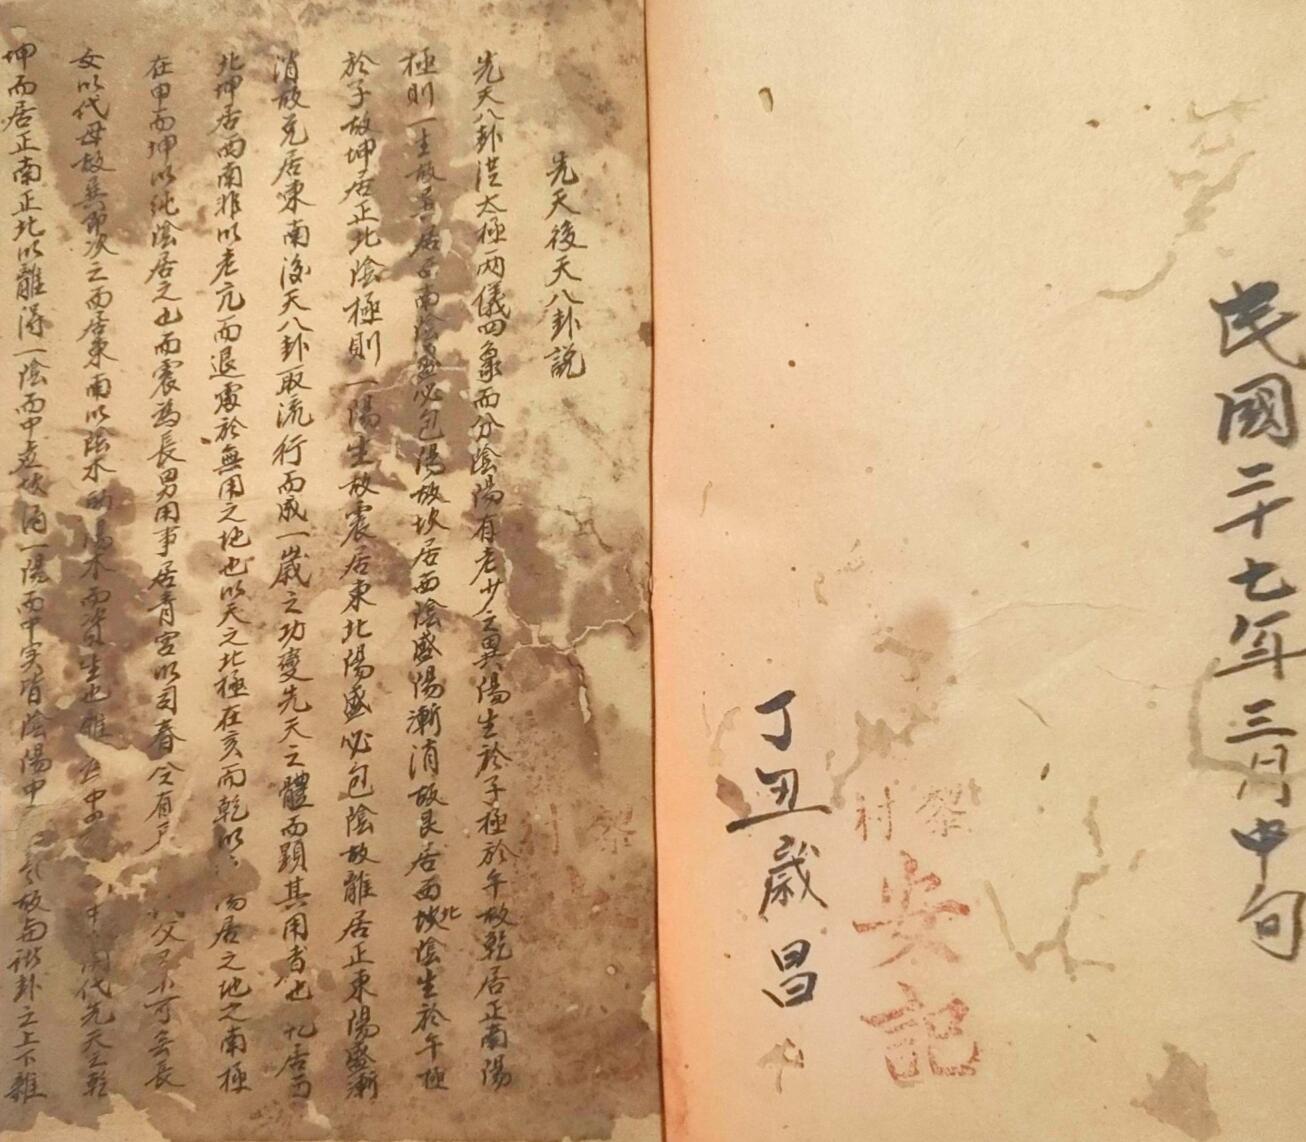 民國二十七年三月中旬
丁丑歲昌
黎村
安記
先天後天八卦説
先天八卦從太極兩儀四象而分陰陽有老少之異陽生於子極於午故乾居正南陽
極則一生故巽居西南陰盛必包陽故坎居西陰盛陽漸消故艮居西北陰生於午極
於子故坤居正北陰極則一陽生故震居東北陽盛必包陰故離居正東陽盛漸
消故兑居東南後天八卦取流行而成一歲之功變先天之體而顕其用者也居西
北坤居西南非以老亢而退處於無用之地也以天之北極在亥而乾以居之地之南極
在申而坤以純陰居之也而震為長男用事居青宮以司春令有父不可無長
女以代母故巽即次之而居東南以陰木助陽木而生也離中中代先天之乾
坤而居正南正北以離得一陰而中虚坎得一陽而中实皆陰陽中故與諸卦之上下雜